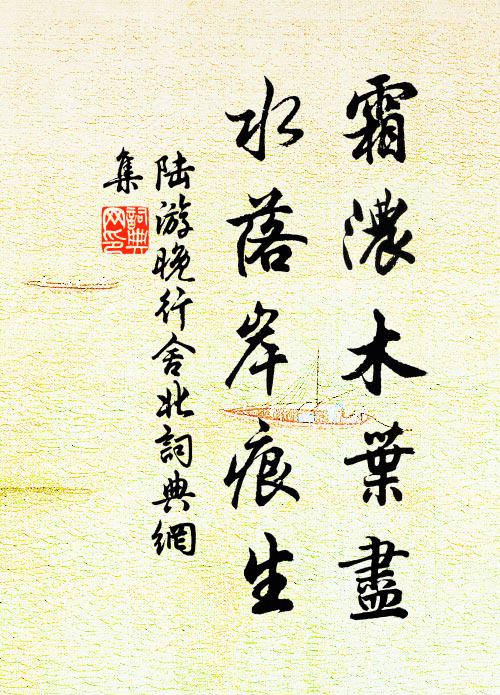 霜濃木葉盡
水落岸痕生
陆游晚行舍北詞典網
集
詞典网印